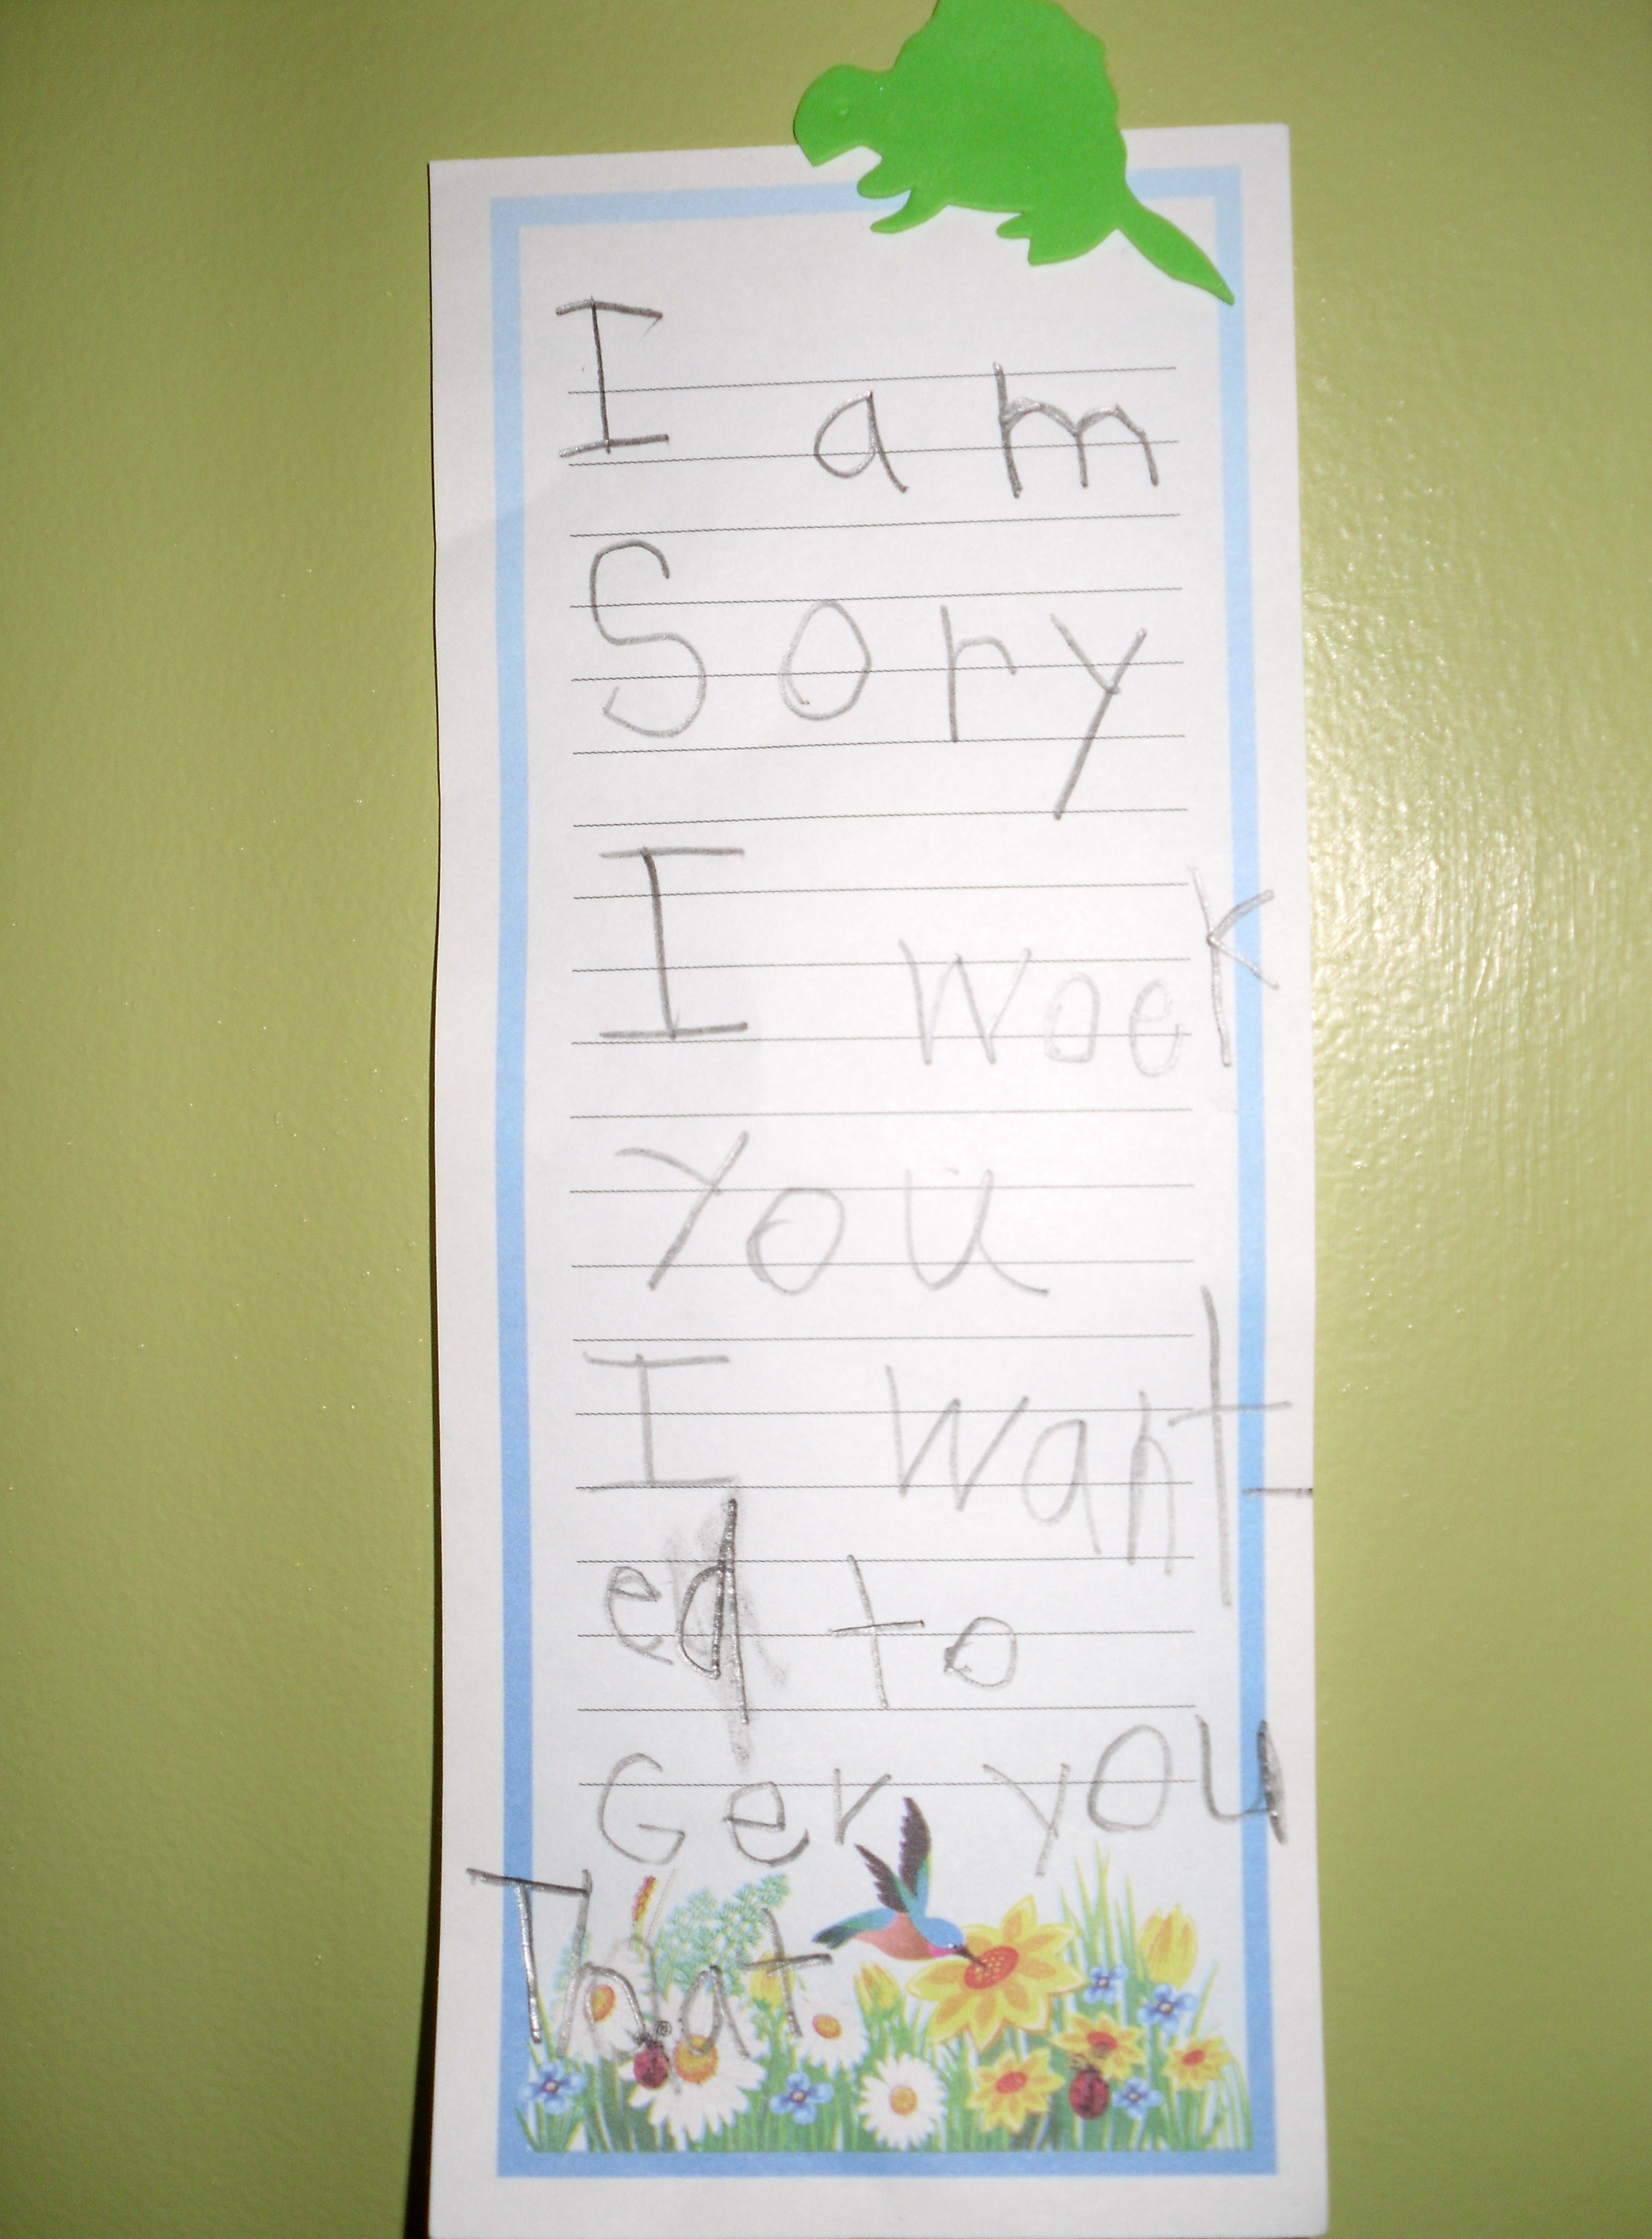 I am
Sory
I woek
You
I want-
ed to
Ger you
That